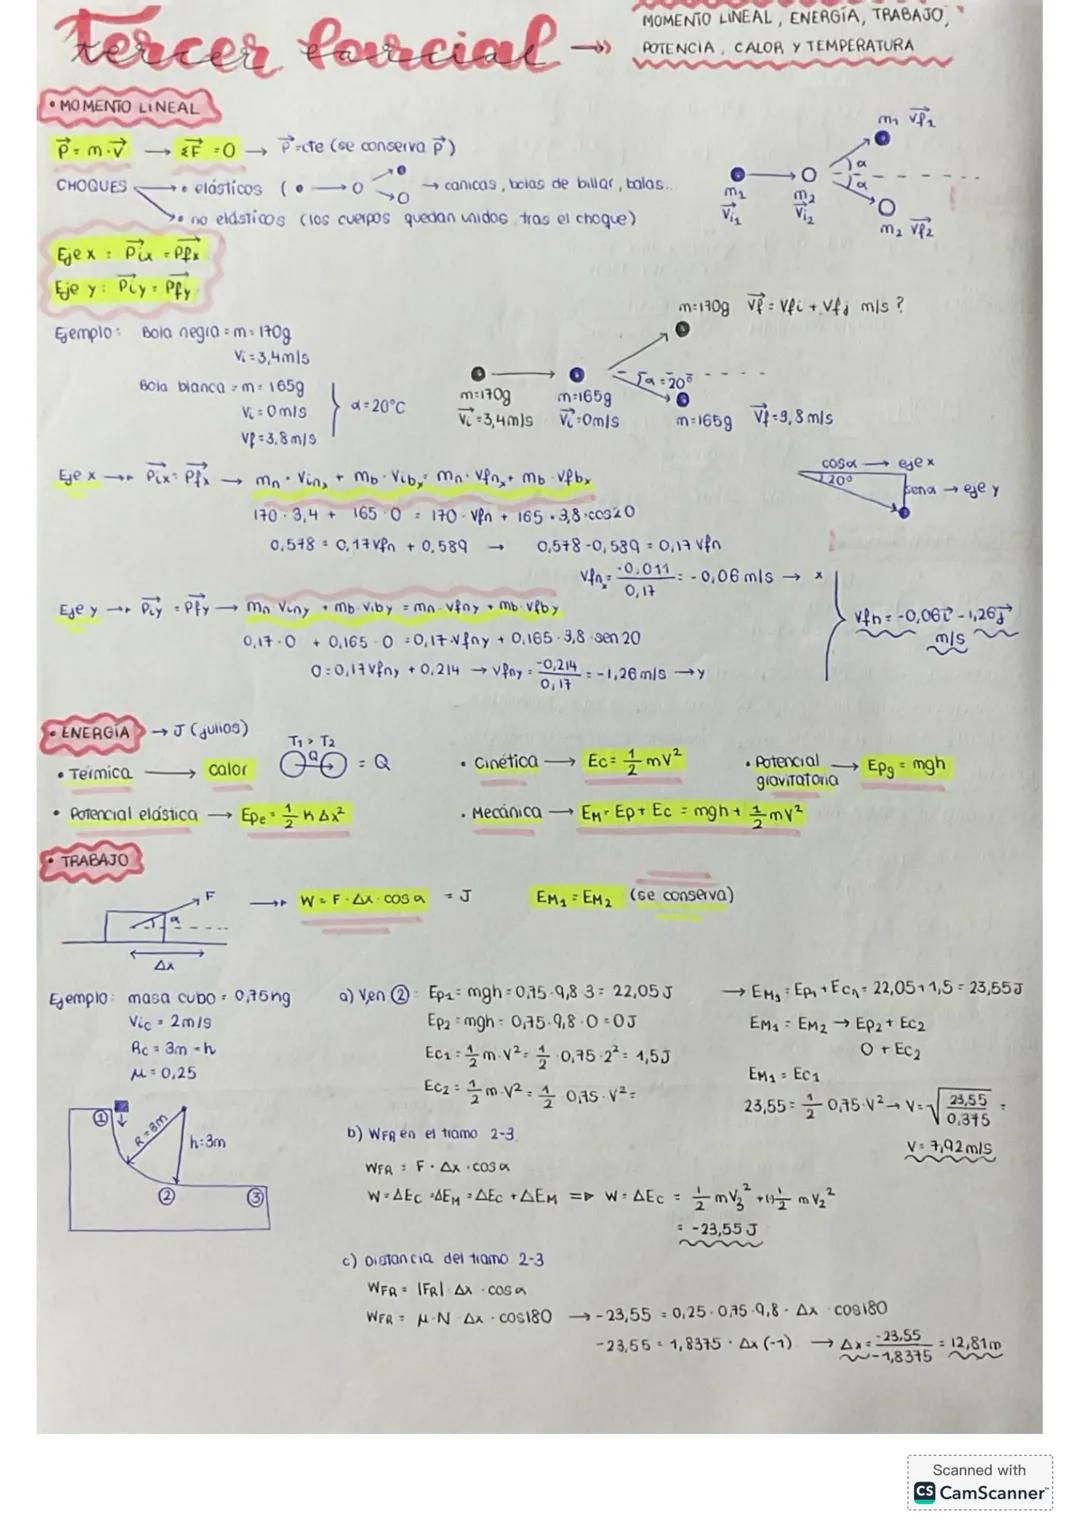 tercer parcial → MOMENTO LINEAL, ENERGÍA, TRABAJO,
POTENCIA, CALOR Y TEMPERATURA
• MOMENTO LINEAL
P⃗ = m·v⃗ → ΣF⃗ = 0 → P⃗=cte (se conserva P⃗)
CHOQUES → • elásticos ( → canicas, bolas de billar, balas...
• no elásticos (los cuerpos quedan unidos tras el choque)
m₁ v⃗f₁
α
α
m₁ m₂
v⃗i₁ v⃗i₂
m₂ v⃗f₂
Eje x : P⃗ix = P⃗fx
Eje y: P⃗iy = P⃗fy
Ejemplo: Bola negra = m = 170g
Vi = 3,4m/s
Bola blanca = m = 165g
Vi = 0m/s
Vf = 3,8m/s
α = 20°C
m=170g v⃗f = vfi + vfj m/s ?
α = 20°
m=170g m=165g
v⃗i = 3,4m/s v⃗i = 0m/s
m=165g v⃗f = 9,8m/s
Eje x → P⃗ix = P⃗fx → mn · Vinx + mb · Vibx = mn · Vfnx + mb · Vfbx
170 · 3,4 + 165 · 0 = 170 · Vfn + 165 · 3,8 · cos20
0,578 = 0,17Vfn + 0,589 → 0,578 - 0,589 = 0,17 Vfn
Vfnx = -0,011 / 0,17 = -0,06 m/s → x
cosα → eje x
20°
senα → eje y
Eje y → P⃗iy = P⃗fy → mn Viny + mb · Viby = mn · Vfny + mb · Vfby
0,17 · 0 + 0,165 · 0 = 0,17 · Vfny + 0,165 · 3,8 · sen 20
0 = 0,17Vfny + 0,214 → Vfny = -0,214 / 0,17 = -1,26 m/s → y
Vfn = -0,06i⃗ - 1,26j⃗
m/s
• ENERGÍA → J (julios)
T₁ > T₂
Q = Q
• Térmica → calor
• Cinética → Ec = 1/2 mv²
• Potencial gravitatoria → Epg = mgh
• Potencial elástica → Epe = 1/2 K Δx²
• Mecánica → EM = Ep + Ec = mgh + 1/2 mv²
• TRABAJO
F
α
Δx
→ W = F · Δx · cos α = J
EM₁ = EM₂ (se conserva)
Ejemplo: masa cubo = 0,75kg
Vic = 2m/s
Rc = 3m = h
μ = 0,25
①
R=3m
h=3m
②
③
a) V en ② : Ep₁ = mgh = 0,75 · 9,8 · 3 = 22,05 J
Ep₂ = mgh = 0,75 · 9,8 · 0 = 0J
Ec₁ = 1/2 m · v² = 1/2 · 0,75 · 2² = 1,5J
Ec₂ = 1/2 m · v² = 1/2 · 0,75 · v² =
→ EM₁ = Ep₁ + Ec₁ = 22,05 + 1,5 = 23,55J
EM₁ = EM₂ → Ep₂ + Ec₂
0 + Ec₂
EM₁ = Ec₁
23,55 = 1/2 0,75 · v² → V = √(23,55 / 0,375) =
V = 7,92 m/s
b) WFR en el tramo 2-3
WFR = F · Δx · cos α
W = ΔEc = ΔEM = ΔEc + ΔEM ⇒ W = ΔEc = 1/2 mv₃² + (-) 1/2 mv₂²
= -23,55 J
c) Distancia del tramo 2-3
WFR = |FR| · Δx · cos α
WFR = μ · N · Δx · cos180 → -23,55 = 0,25 · 0,75 · 9,8 · Δx · cos180
-23,55 = 1,8375 · Δx (-1) → Δx = -23,55 / -1,8375 = 12,81m
Scanned with
CS CamScanner